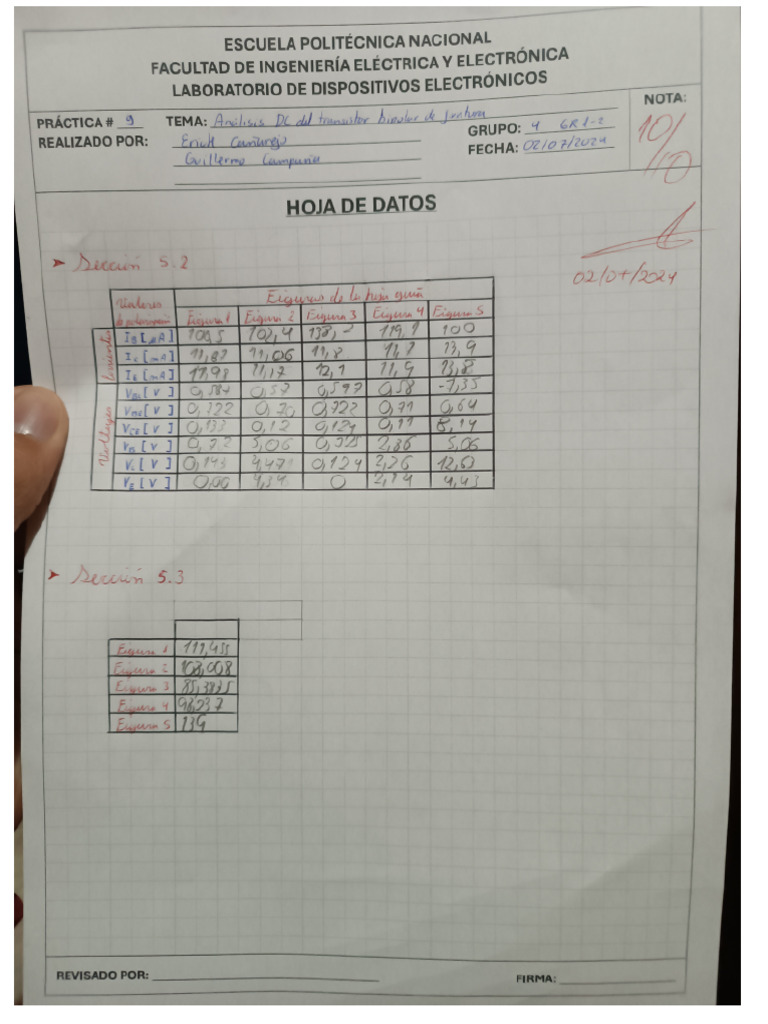 ESCUELA POLITÉCNICA NACIONAL
FACULTAD DE INGENIERÍA ELÉCTRICA Y ELECTRÓNICA
LABORATORIO DE DISPOSITIVOS ELECTRÓNICOS
NOTA:
10/10
PRÁCTICA # 9 TEMA: Análisis DC del transistor bipolar de juntura
REALIZADO POR: Erick
Guillermo
GRUPO: 4 GR1-2
FECHA: 02/07/2024
HOJA DE DATOS
➤ Sección 5.2
02/07/2024
Valores Figuras de la hoja guía
Figura 1 Figura 2 Figura 3 Figura 4 Figura 5
Corrientes
IB [µA] 102,4 119,9 100
IC [mA] 11,06 11,8 13,9
IE [mA] 11,17 12,1 11,9 13,8
Voltajes
0,57 0,597 0,58 -7,35
VBE [V] 0,722 0,70 0,722 0,71 0,64
VCE [V] 0,133 0,12 0,124 0,11 8,14
VB [V] 0,72 5,06 0,725 2,86 5,06
VC [V] 0,143 4,471 0,124 2,26 12,63
VE [V] 0,06 4,34 0 2,14 4,43
➤ Sección 5.3
Figura 1 111,455
Figura 2 108,008
Figura 3 85,3835
Figura 4 98,237
Figura 5 139
REVISADO POR:
FIRMA: